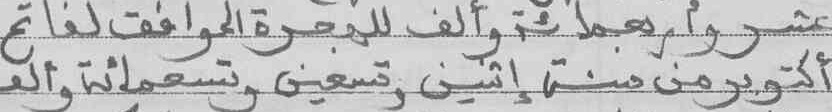 عشر وأربعمائة وألف للهجرة الموافق لفاتح
أكتوبر من سنة إثنين وتسعين وتسعمائة وألف